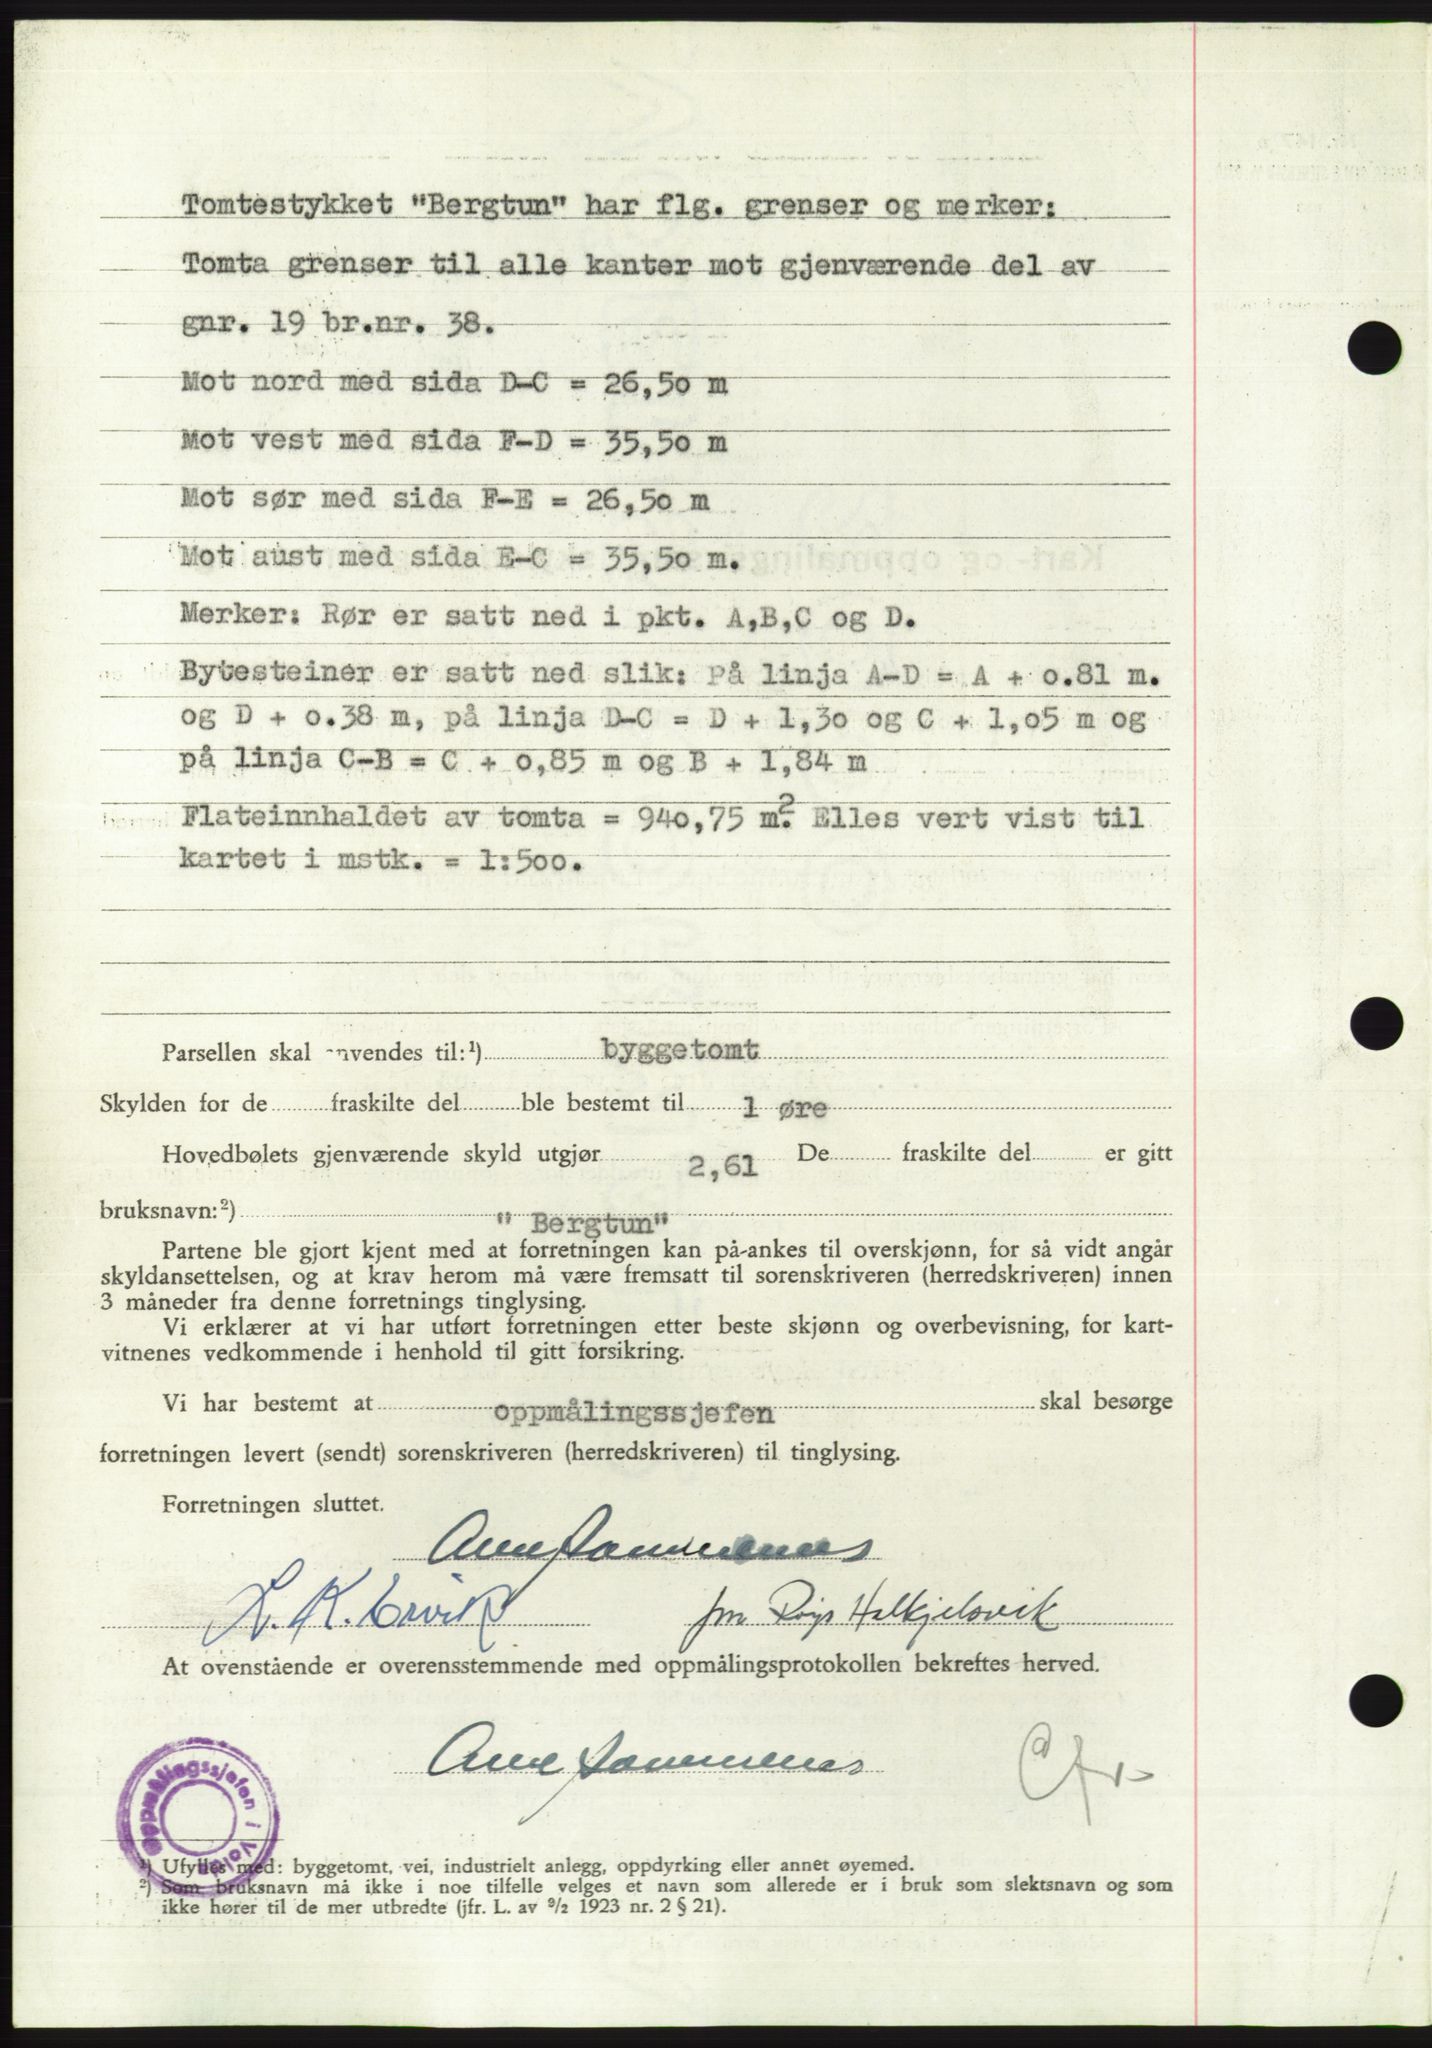 Tomtestykket "Bergtun" har flg. grenser og merker:
Tomta grenser til alle kanter mot gjenværende del av
gnr. 19 br.nr. 38.
Mot nord med sida D-C = 26,50 m
Mot vest med sida F-D = 35,50 m
Mot sør med sida F-E = 26,50 m
Mot aust med sida E-C = 35,50 m.
Merker: Rør er satt ned i pkt. A,B,C og D.
Bytesteiner er satt ned slik: På linja A-D = A + 0.81 m.
og D + 0.38 m, på linja D-C = D + 1,30 og C + 1,05 m og
på linja C-B = C + 0,85 m og B + 1,84 m
Flateinnhaldet av tomta = 940,75 m². Elles vert vist til
kartet i mstk. = 1:500.
Parsellen skal anvendes til:¹) byggetomt
Skylden for de fraskilte del ble bestemt til 1 øre
Hovedbølets gjenværende skyld utgjør 2,61 De fraskilte del er gitt
bruksnavn:²) " Bergtun"
Partene ble gjort kjent med at forretningen kan på-ankes til overskjønn, for så vidt angår
skyldansettelsen, og at krav herom må være fremsatt til sorenskriveren (herredskriveren) innen
3 måneder fra denne forretnings tinglysing.
Vi erklærer at vi har utført forretningen etter beste skjønn og overbevisning, for kart-
vitnenes vedkommende i henhold til gitt forsikring.
Vi har bestemt at oppmålingssjefen skal besørge
forretningen levert (sendt) sorenskriveren (herredskriveren) til tinglysing.
Forretningen sluttet.
L. K.
At ovenstående er overensstemmende med oppmålingsprotokollen bekreftes herved.
Oppmålingssjefen i Volda
¹) Ufylles med: byggetomt, vei, industrielt anlegg, oppdyrking eller annet øyemed.
²) Som bruksnavn må ikke i noe tilfelle velges et navn som allerede er i bruk som slektsnavn og som
ikke hører til de mer utbredte (jfr. L. av ⁹/₂ 1923 nr. 2 § 21).